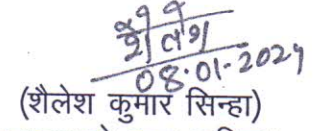 शैलेश
08.01-2024
(शैलेश कुमार सिन्हा)